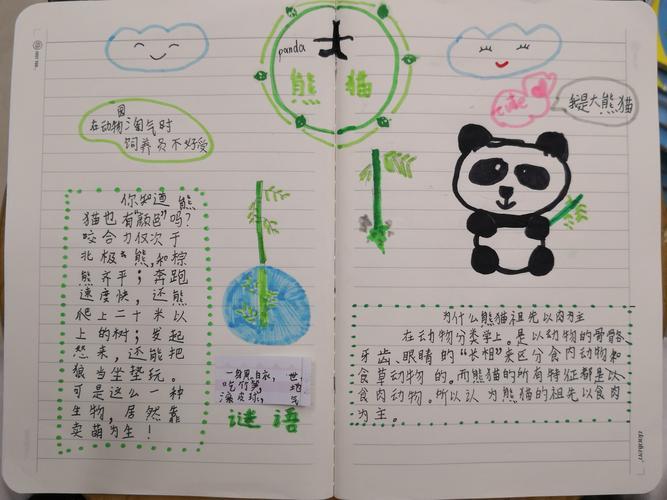 panda
大
熊猫
在动物园淘气时
饲养员不好受
我是大熊猫
你知道熊
猫也有"颜色"吗?
咬合力仅次于
北极熊,和棕
熊齐平;奔跑
速度快,还能
爬上二十米以
上的树;发起
怒来,还能把
狼当坐垫玩。
可是这么一种
生物,居然靠
卖萌为生!
吃竹
谜语
为什么熊猫祖先以肉为主
在动物分类学上。是以动物的骨骼、
牙齿、眼睛的"长相"来区分食肉动物和
食草动物的。而熊猫的所有特征都是以
食肉动物。所以认为熊猫的祖先以食肉
为主。